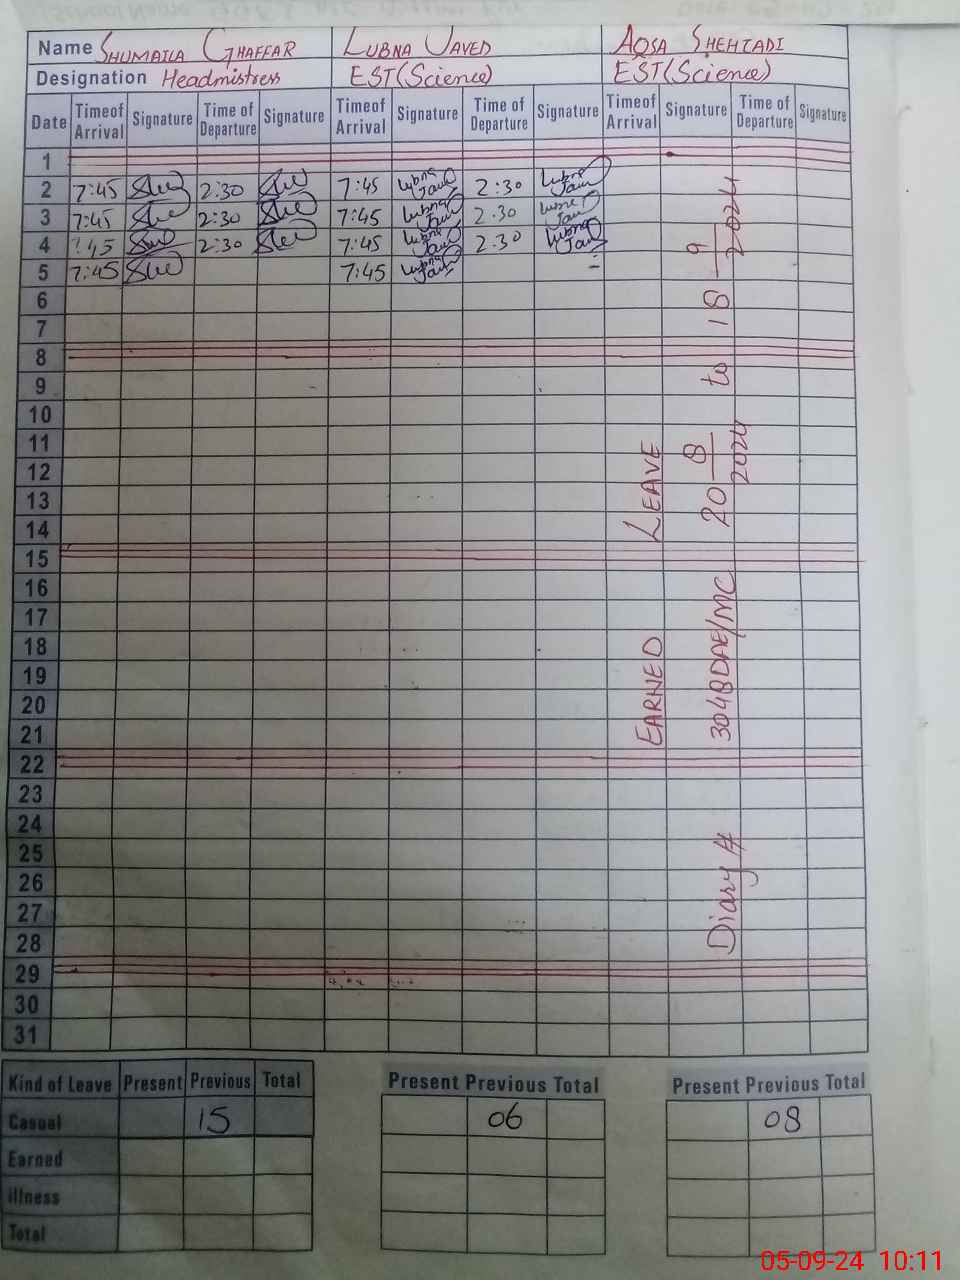 Name SHUMAILA GHAFFAR LUBNA JAVED AQSA SHEHZADI
Designation Headmistress EST(Science) EST(Science)
Date Time of Arrival Signature Time of Departure Signature Time of Arrival Signature Time of Departure Signature Time of Arrival Signature Time of Departure Signature
1
2 7:45 2:30 7:45 Lubna 2:30 Lubna
3 7:45 2:30 7:45 Lubna 2.30 Lubna
4 7:45 2:30 7:45 Lubna 2.30 Lubna
5 7:45 7:45 Lubna
6
7
8
9
10
11
12
13
14
15
16
17
18
19
20
21
22
23
24
25
26
27
28
29
30
31
EARNED LEAVE
Diary # 3048DAE/MC 20 8/2024 to 18 9/2024
Kind of Leave Present Previous Total Present Previous Total Present Previous Total
Casual 15 06 08
Earned
illness
Total
05-09-24 10:11